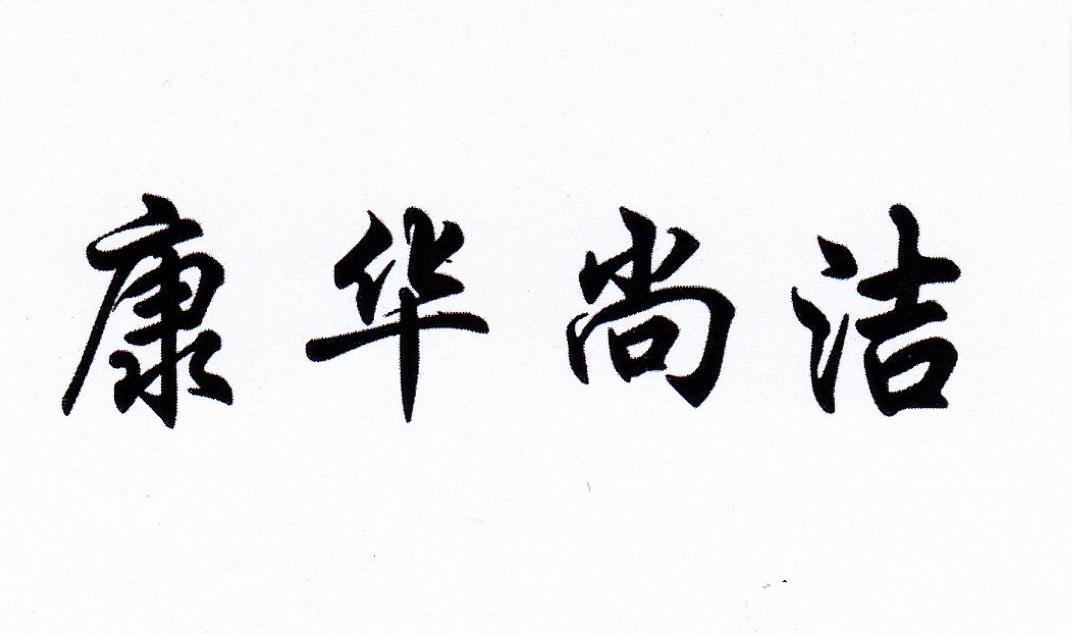 康华尚洁